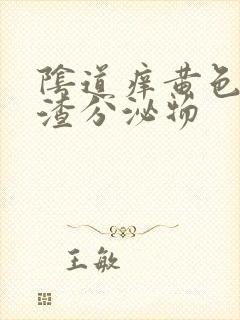 陰道痒黄色
渣分泌物
王敏